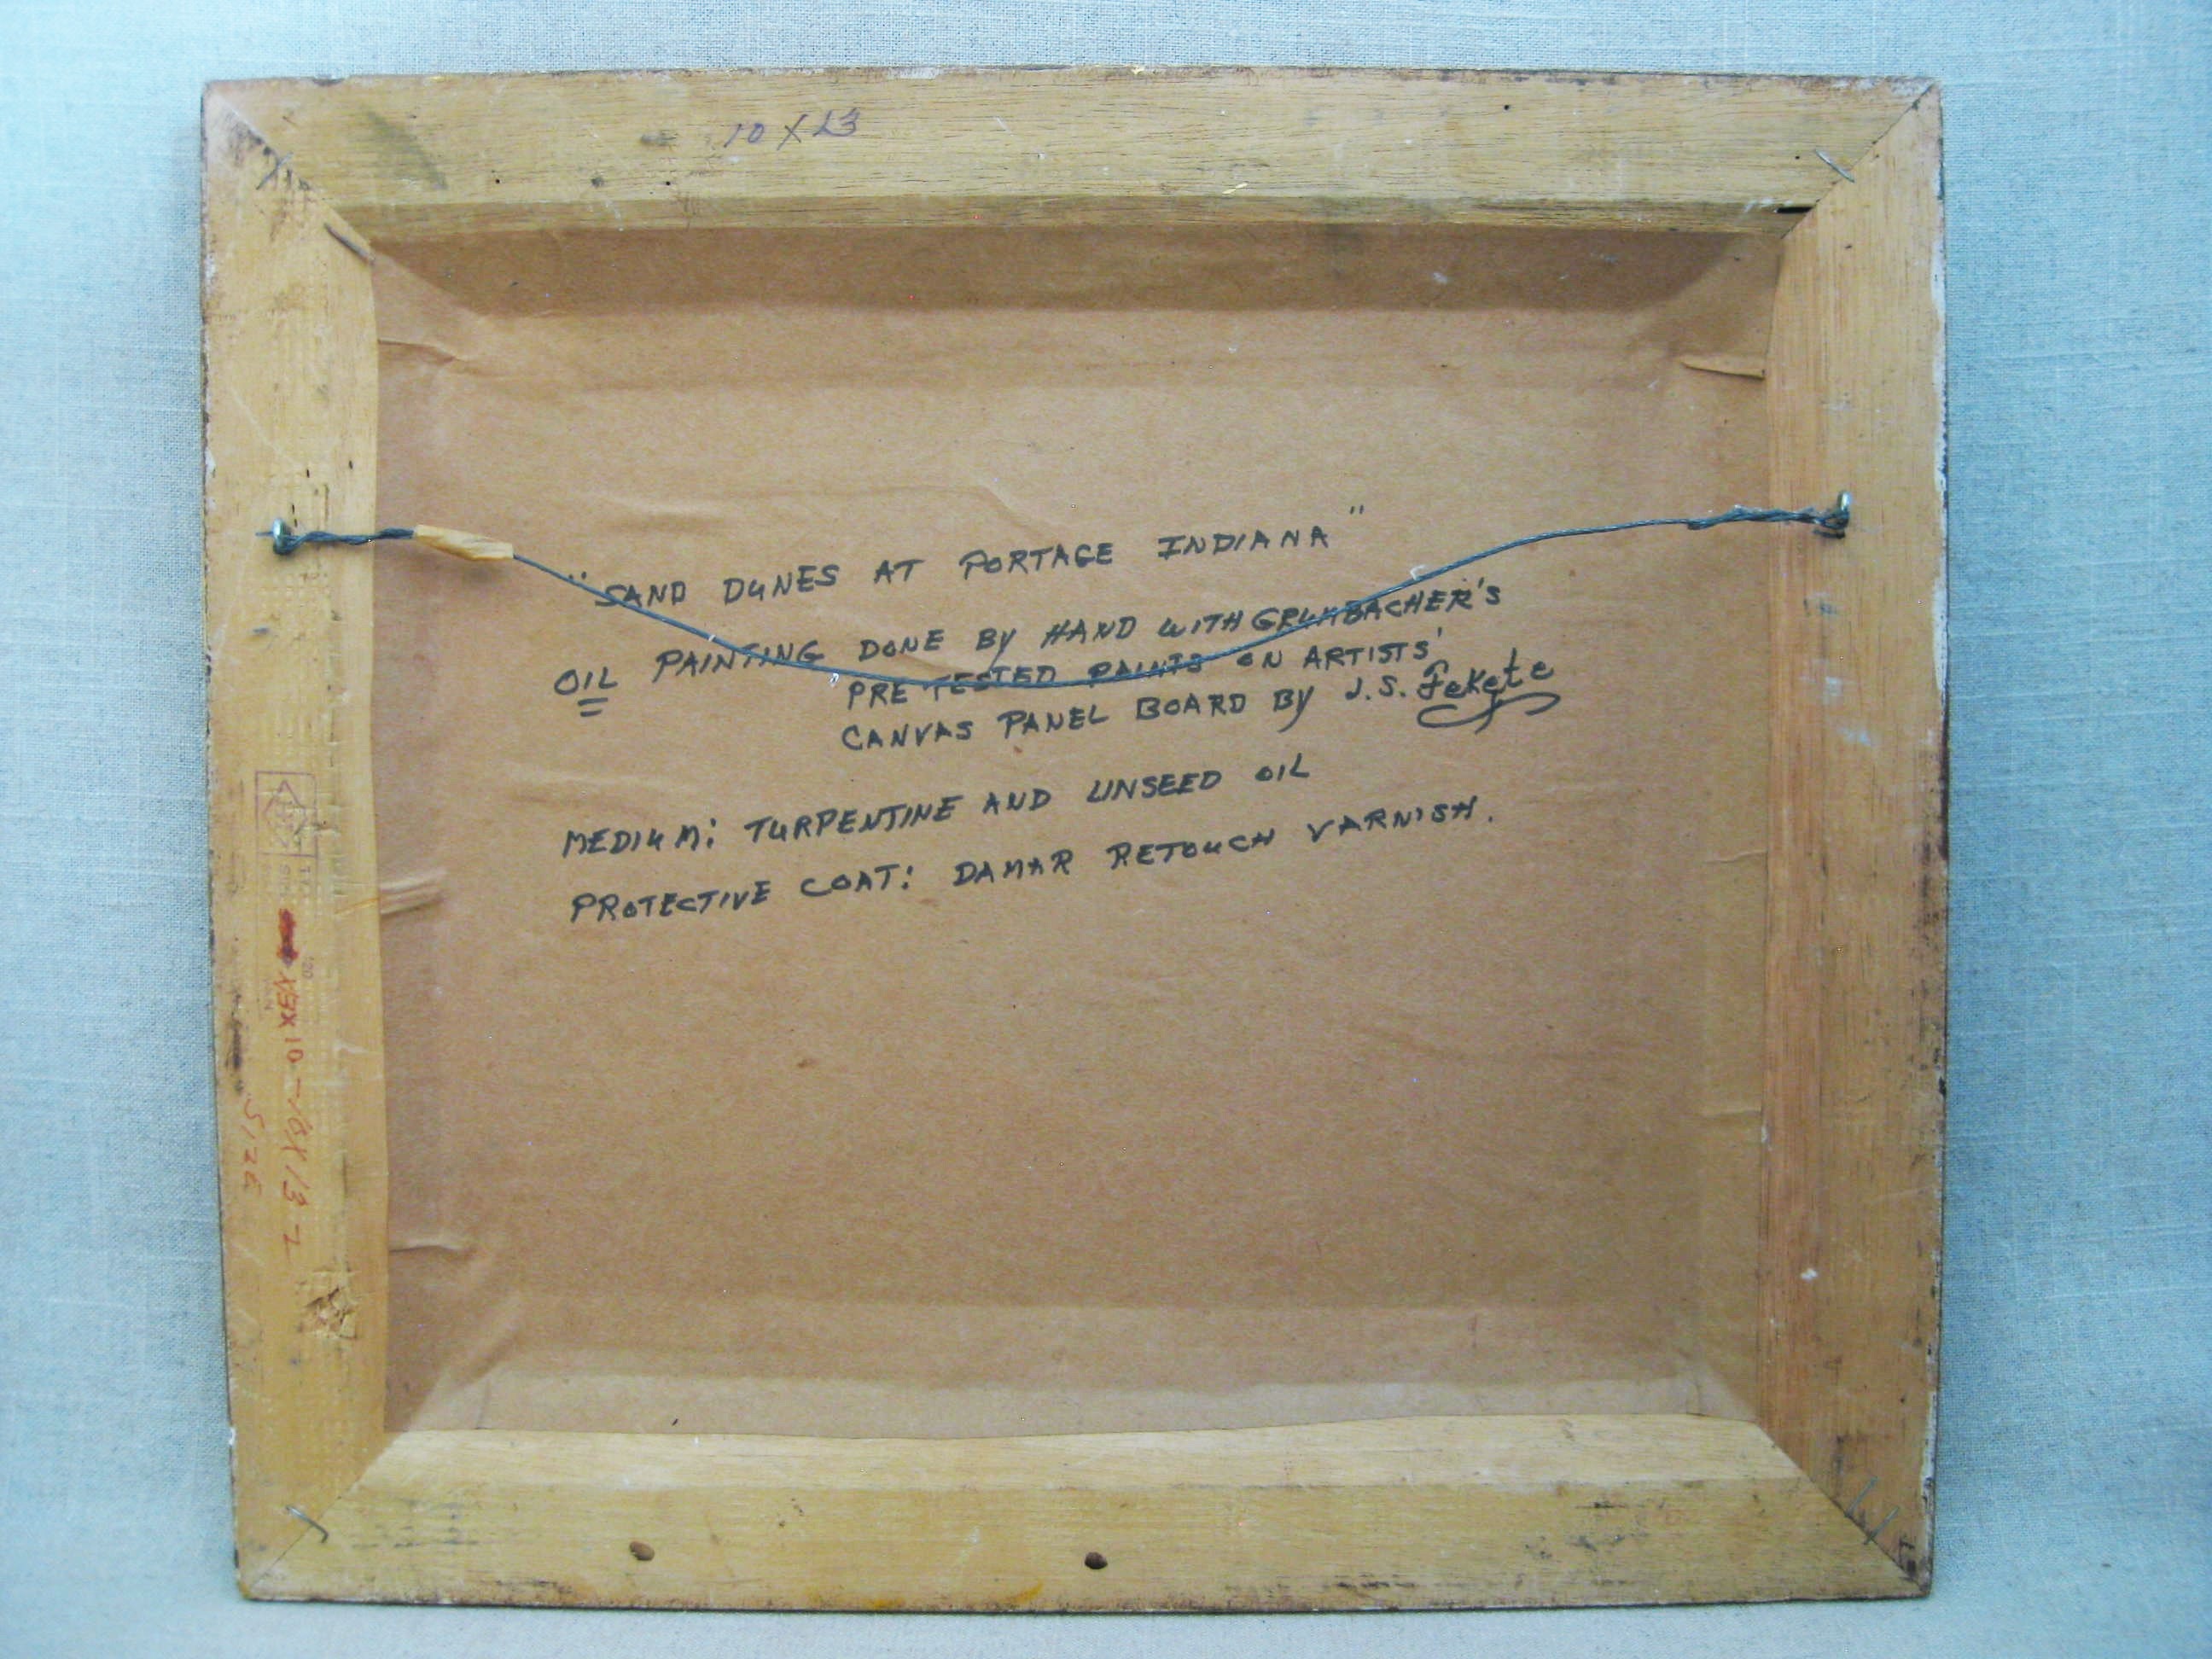 10 X 13
" SAND DUNES AT PORTAGE INDIANA "
OIL PAINTING DONE BY HAND WITH GRUMBACHER'S
PRE TESTED PAINTS ON ARTISTS'
CANVAS PANEL BOARD BY J.S. Fekete
MEDIUM: TURPENTINE AND LINSEED OIL
PROTECTIVE COAT: DAMAR RETOUCH VARNISH.
SIZE